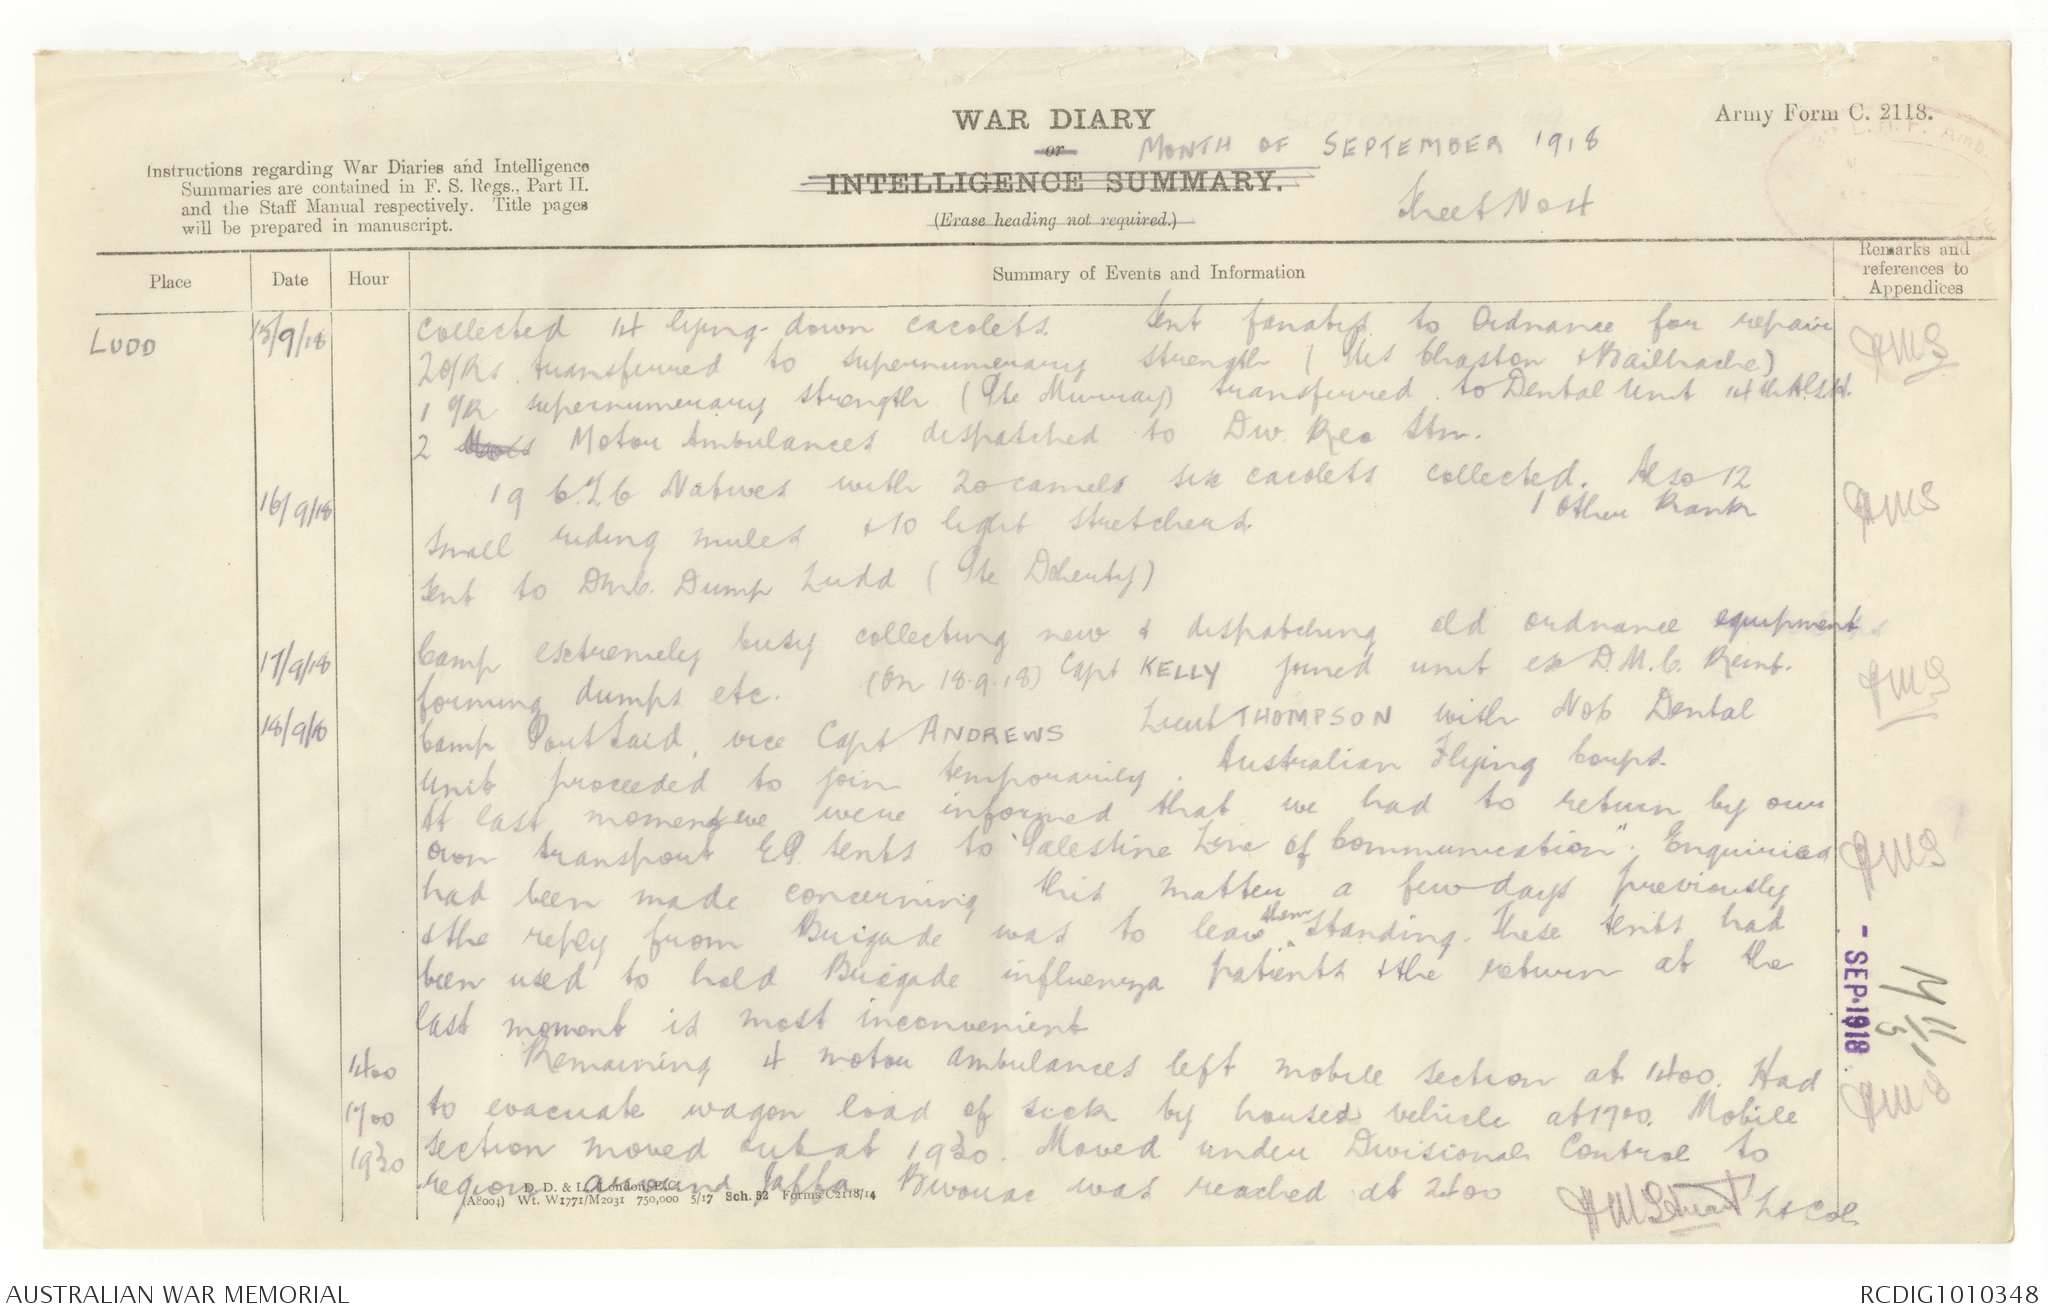 WAR DIARY
or
MONTH OF SEPTEMBER 1918
INTELLIGENCE SUMMARY.
(Erase heading not required.)
Sheet No 4
Army Form C. 2118.
Instructions regarding War Diaries and Intelligence
Summaries are contained in F. S. Regs., Part II.
and the Staff Manual respectively. Title pages
will be prepared in manuscript.
Place
Date
Hour
Summary of Events and Information
Remarks and
references to
Appendices
LUDD
15/9/18
collected 14 lying-down cacolets. Sent fanatis to Ordnance for repair
2 O/Rs transferred to supernumerary strength (Ptes Chaston & Bailhache)
1 O/R supernumerary strength (Pte Murray) transferred to Dental Unit
2 Motor Ambulances dispatched to Div. Rec Stn.
16/9/18
19 C.T.C Natives with 20 camels six cacolets collected. Also 12
small riding mules & 10 light stretchers. 1 Other Rank
sent to Dump Ludd (Pte Doherty)
17/9/18
Camp extremely busy collecting new & dispatching old ordnance equipment
forming dumps etc. (On 18.9.18) Capt KELLY joined unit ex D.M.C. Reint.
18/9/18
Camp Port Said, vice Capt ANDREWS Lieut THOMPSON with No 6 Dental
Unit proceeded to join temporarily. Australian Flying Corps.
At last moment we were informed that we had to return by our
own transport E.P. tents to "Palestine Line of Communication". Enquiries
had been made concerning this matter a few days previously
& the reply from Brigade was to leave them standing. These tents had
been used to hold Brigade influenza patients & the return at the
last moment is most inconvenient
1400
Remaining 4 motor ambulances left mobile section at 1400. Had
1700
to evacuate wagon load of sick by horsed vehicle at 1700. Mobile
1930
section moved out at 1930. Moved under Divisional Control to
region around Jaffa. Bivouac was reached at 2400
Lt Col
- SEP 1918
D. D. & L., London, E.C.
(A8004) Wt. W1771/M2031 750,000 5/17 Sch. 52 Forms/C2118/14
AUSTRALIAN WAR MEMORIAL
RCDIG1010348